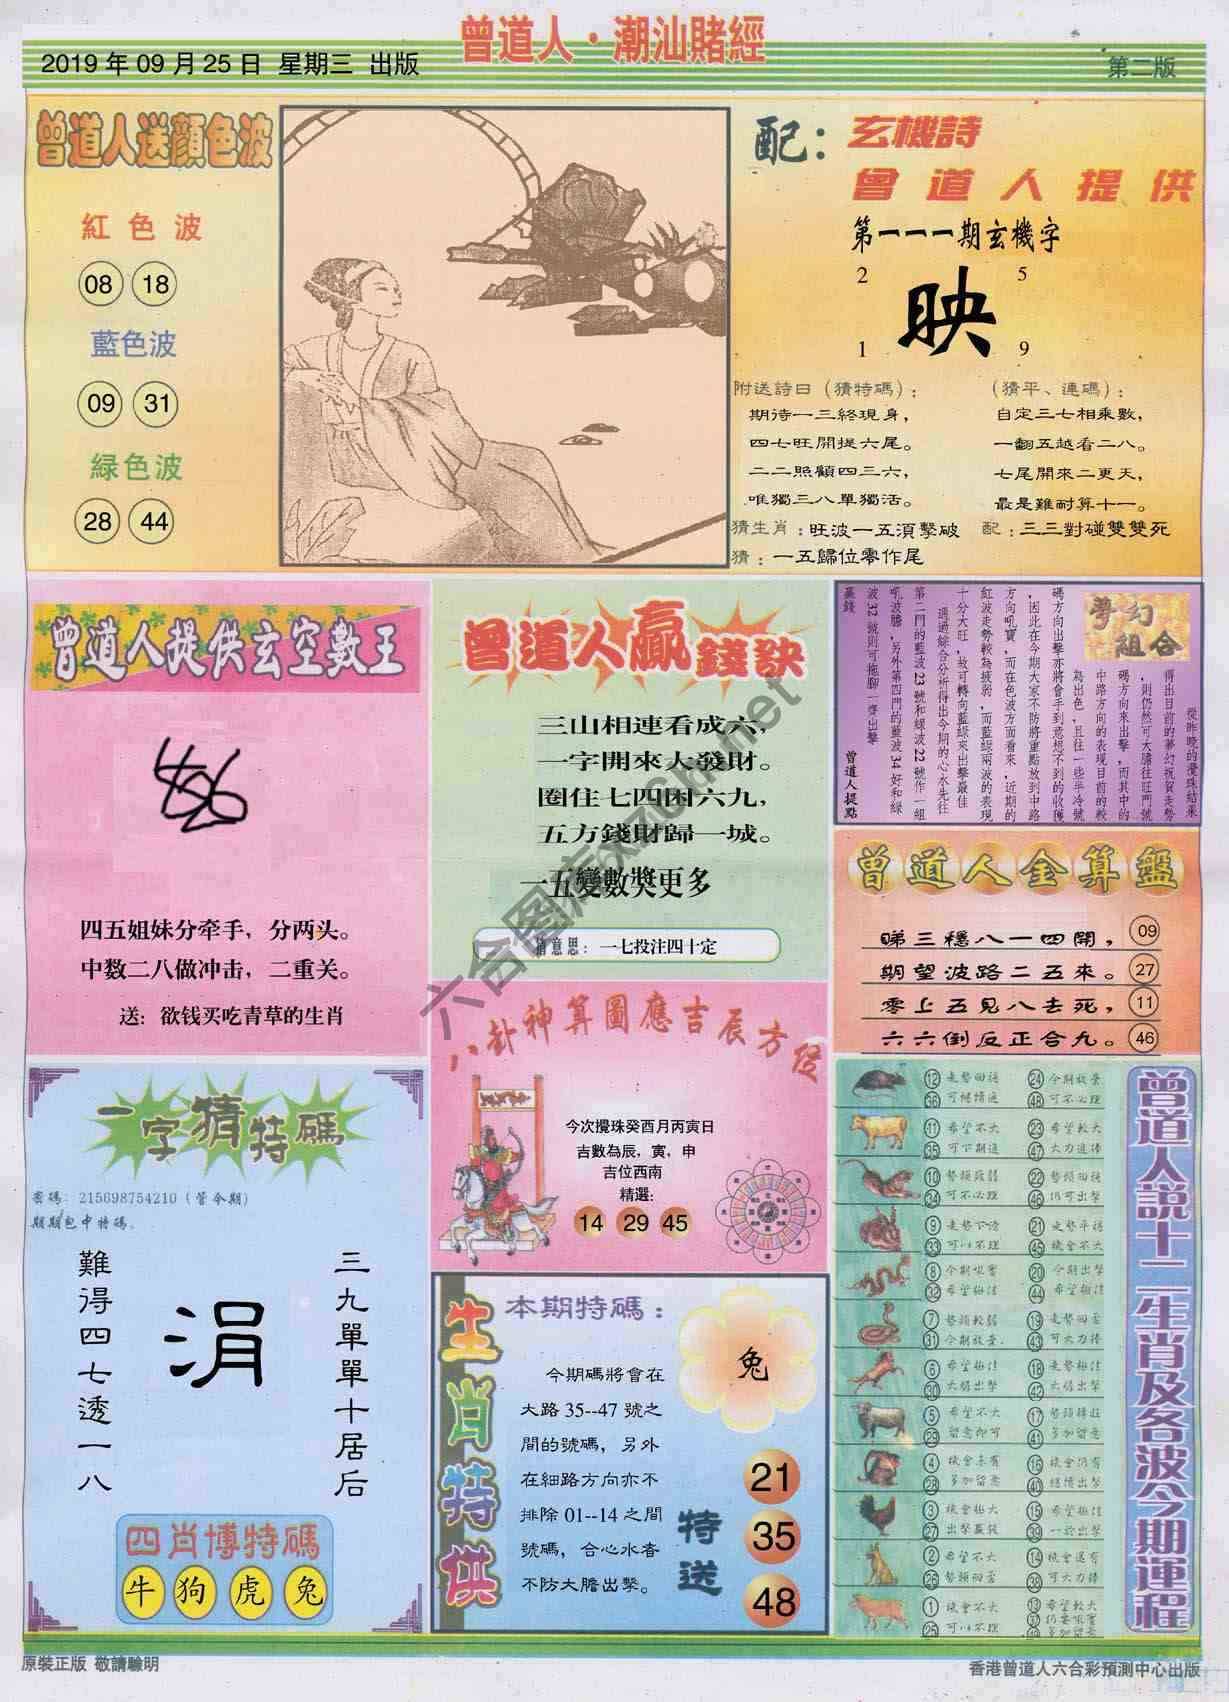 曾道人·潮汕賭經
2019年09月25日 星期三 出版
第二版
曾道人送顏色波
紅色波
08 18
藍色波
09 31
緑色波
28 44
配：玄機詩
曾道人提供
第一一一期玄機字
2 5
映
1 9
附送詩曰（猜特碼）：
期待一三終現身，
四七旺開提六尾。
二二照顧四三六，
唯獨三八單獨活。
（猜平、連碼）：
自定三七相乘數，
一翻五越看二八。
七尾開來二更天，
最是難耐算十一。
猜生肖：旺波一五須擊破
配：三三對碰雙雙死
猜：一五歸位零作尾
曾道人提供玄空數王
四五姐妹分牵手，分两头。
中数二八做冲击，二重关。
送：欲钱买吃青草的生肖
曾道人贏錢訣
三山相連看成六，
一字開來大發財。
圈住七四困六九，
五方錢財歸一城。
一五變數獎更多
猜意思：一七投注四十定
夢幻組合
從昨晚的攪珠結果
得出目前的夢幻祝賀走勢
，則仍然可大膽往旺門號
碼方向來出擊，而其中的
中路方向的表現目前的較
為出色，且往一些半冷號
碼方向出擊亦將會手到意想不到的收穫
，因此在今期大家不防將重點放到中路
方向吼寶，而在色波方面看來，近期的
紅波走勢較為疲弱，而藍綠兩波的表現
十分大旺，故可轉向藍綠來出擊最佳
通過綜合分析得出今期的心水先往
第二門的藍波23號和綠波22號作一組
吼波膽，另外第四門的藍波34好和綠
波32號則可拖腳一齊出擊
贏錢
曾道人提點
曾道人金算盤
睇三穩八一四開， 09
期望波路二五來。 27
零上五見八去死， 11
六六倒反正合九。 46
八卦神算圖應吉辰方位
今次攪珠癸酉月丙寅日
吉數為辰，寅，申
吉位西南
精選：
14 29 45
一字猜特碼
密碼：215698754210（管今期）
期期包中特碼。
三九單單十居后
涓
難得四七透一八
四肖博特碼
牛 狗 虎 兔
生肖特供
本期特碼：
兔
今期碼將會在
大路35--47號之
間的號碼，另外
在細路方向亦不
排除01--14之間
號碼，合心水者
不防大膽出擊。
特送
21
35
48
曾道人説十二生肖及各波今期運程
12
36
24
48
11 希望不大
35 可下期追
23 希望較大
47
10
34
22
46 仍可出擊
9
33
21
45 機會不大
8
32
20 今期出擊
44
7
31
19
43
6
30 大膽出擊
18
42 大膽出擊
5 希望不大
29 留意即可
17
41 多加留意
4
28 多加留意
16 機會仍有
40
3 機會極大
27
15
39
2 希望不大
26
14 機會還有
38
1 機會不大
25
13 希望較大
37
49 多加留意
原裝正版 敬請驗明
香港曾道人六合彩預測中心出版